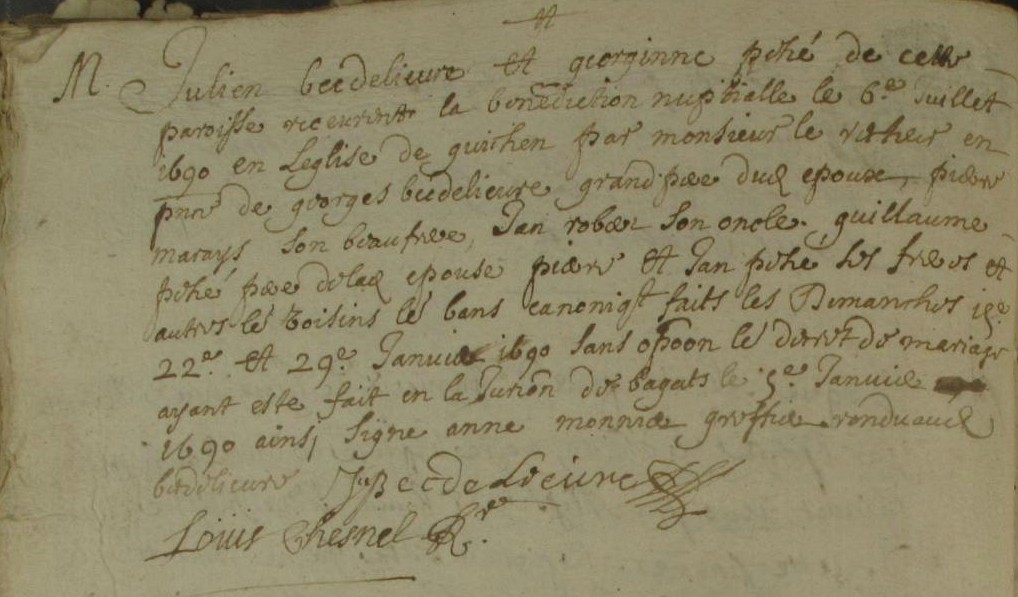 M. Julien becdelieure et georginne pché de cette
paroisse receurent la benediction nuptialle le 6e Juillet
1690 en Leglise de guichen par monsieur le recteur en
pnce de georges becdelieure grand pere dud epoux, pierre
marays son beaufrere, Jan rober son oncle. guillaume
pché pere delad epouse pierre et Jan pché ses freres et
autres le voisins le bans canoniqt faits les Dimanches 15e
22e et 29e Janvier 1690 sans opoon le decret de mariage
ayant este fait en la Jurion de bagats le 5e Janvier
1690 ainsi signe anne monnier greffier
becdelieure J BecdeLieure
Louis Chesnel Rr